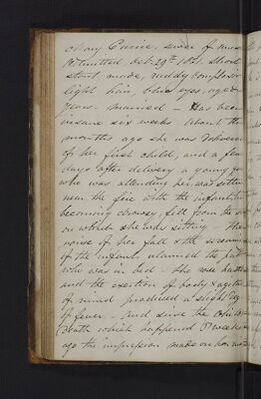 Mary
Admitted Oct. 29th 1821. Short
stout made, ruddy complexion
light hair, blue eyes, aged
years. married — Has been
insane six weeks. About three
months ago she was delivered
of her first child, and a few
days after delivery a young
who was attending her, was sitting
near the fire with the infant
becoming drowsy, fell from the
on which she was sitting — The
noise of her fall & the screams
of the infant, alarmed the
who was in bed — she was
and the exertion of body & agitation
of mind produced a slight
of fever — and since the
Death which happened 5 weeks
ago the impression made on her